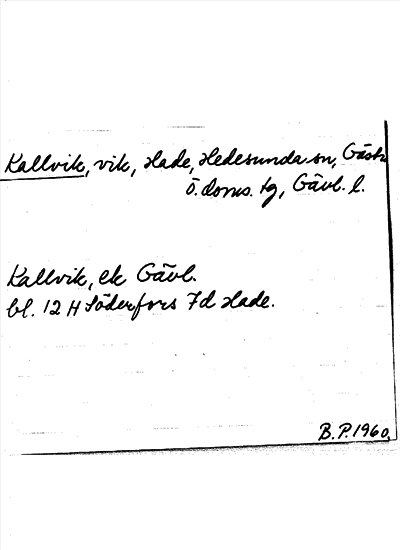 Kallvik, vik, Hade, Hedesunda sn, Gästr
Ö. doms. tg, Gävl. l.
Kallvik, ek Gävl.
bl. 12 H Söderfors 7d Hade.
B.P. 1960.